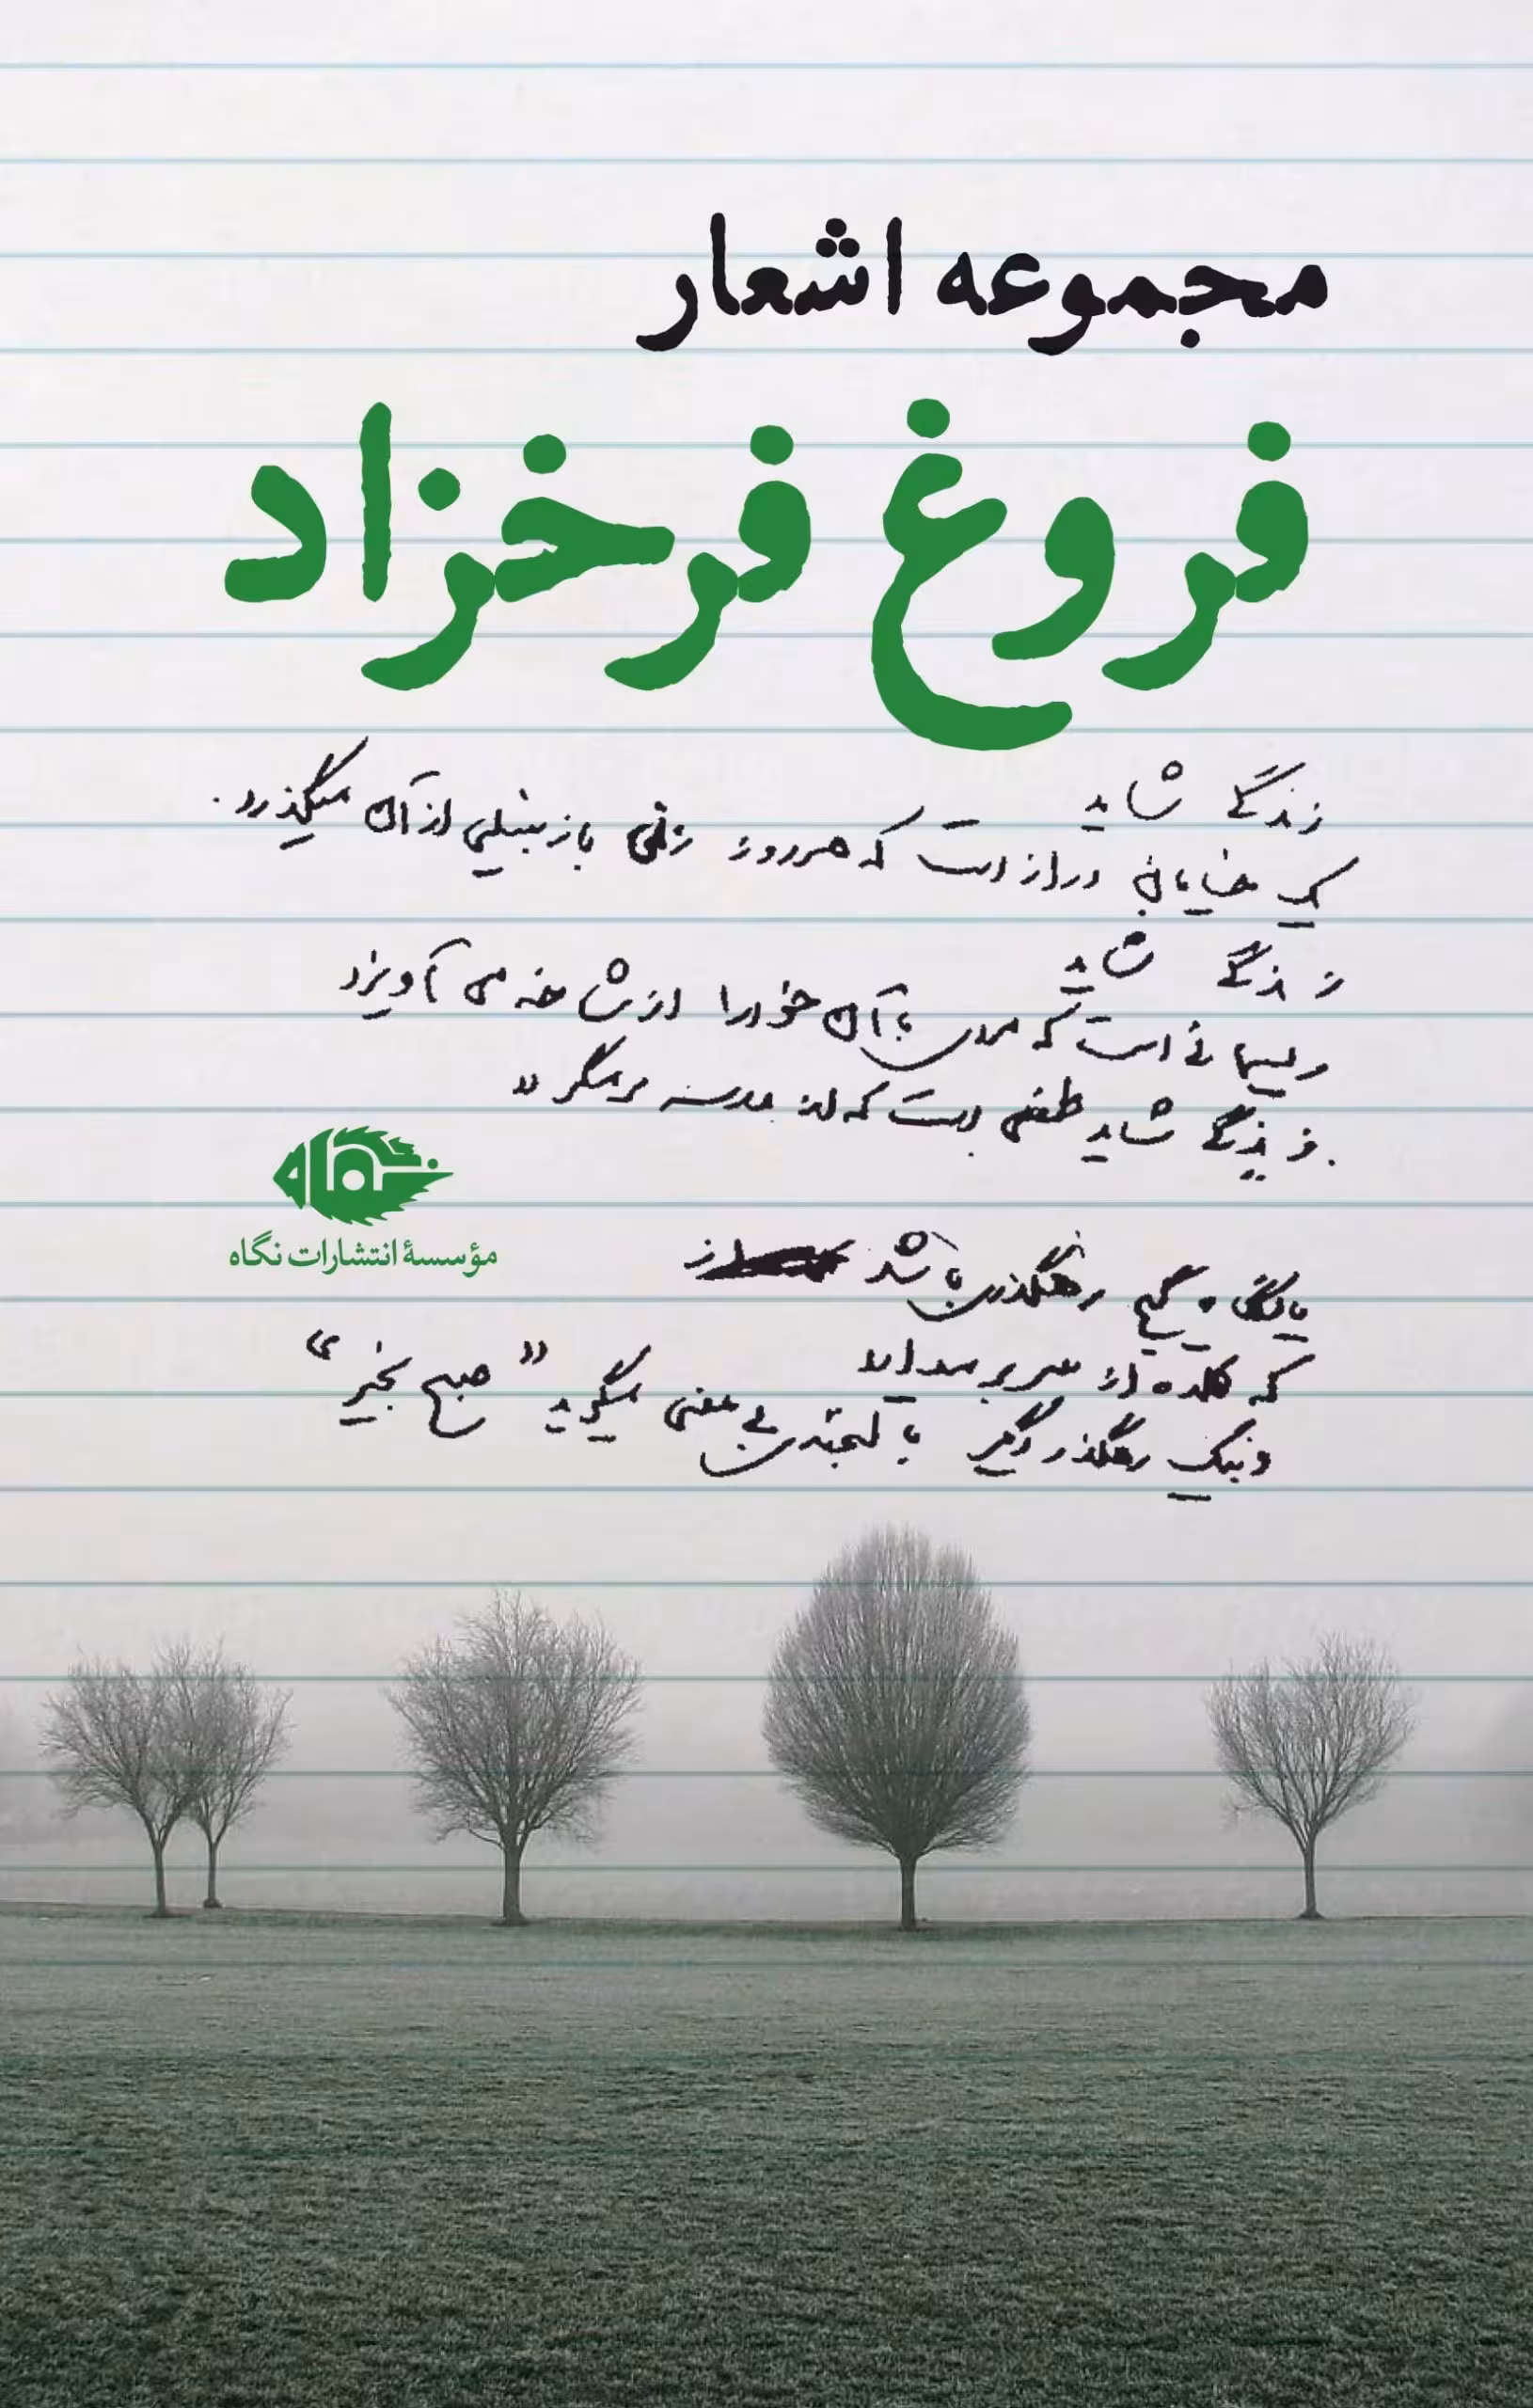 مجموعه اشعار
فروغ فرخزاد
زندگی شاید
یک خیابان دراز است که هر روز زنی با زنبیلی از آن میگذرد.
زندگی شاید
ریسمانی است که مردی با آن خود را از شاخه می آویزد
زندگی شاید طفلی است که از مدرسه برمیگردد
نگاه
مؤسسهٔ انتشارات نگاه
یا نگاه گیج رهگذری باشد
که کلاه از سر برمیدارد
و بیک رهگذر دیگر با لبخندی بی معنی میگوید "صبح بخیر"